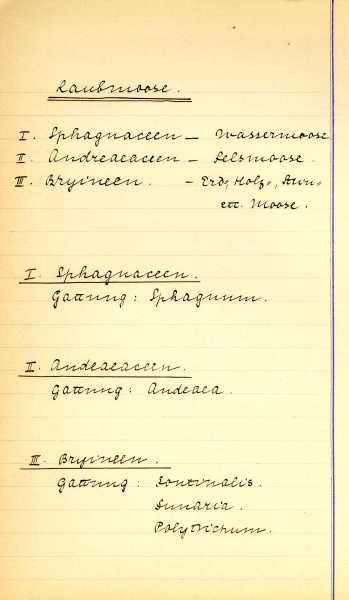 Laubmoose.
I. Sphagnaceen – Wassermoose
II. Andreaeaceen – Felsmoose.
III. Bryineen. – Erd, Holz-,
etc. Moose.
I. Sphagnaceen.
Gattung: Sphagnum.
II. Andeaeaceen.
Gattung: Andeaea.
III. Bryineen.
Gattung: Fontinalis.
Funaria.
Polytrichum.